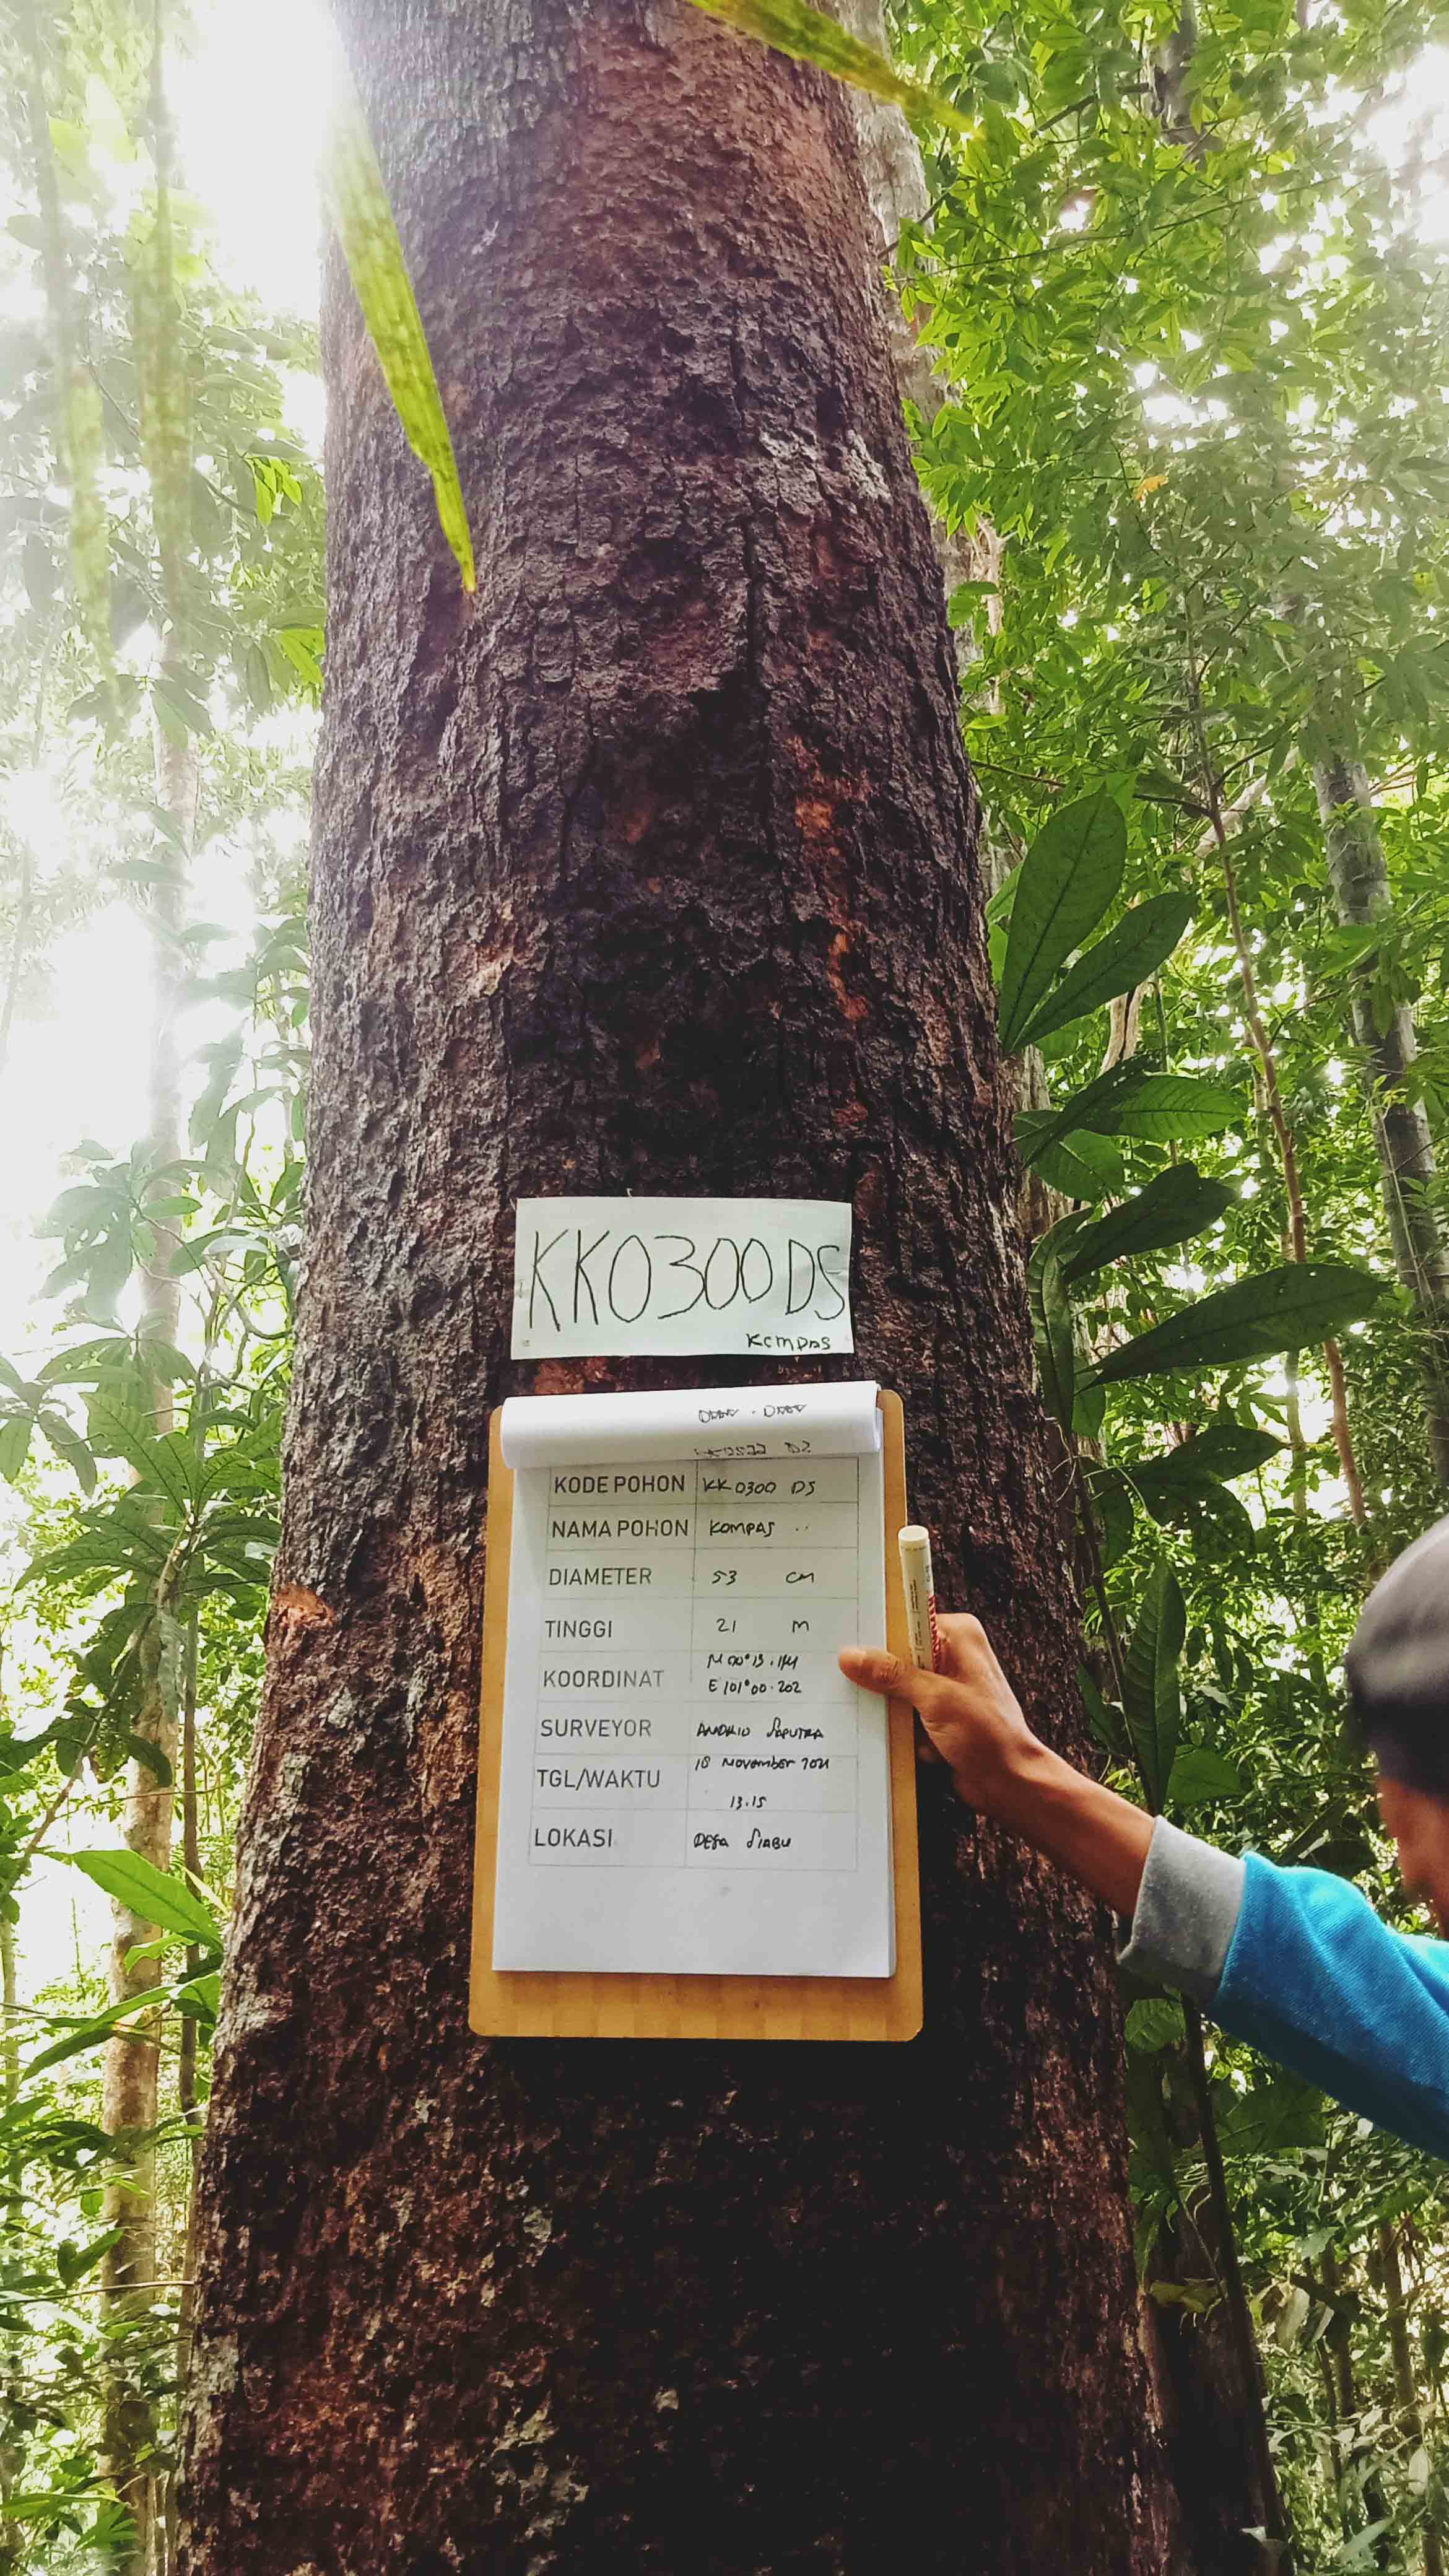 KK0300 DS
KOMPAS
KODE POHON KK0300 DS
NAMA POHON KOMPAS
DIAMETER 53 CM
TINGGI 21 M
KOORDINAT
E 101°00.202
SURVEYOR ANDRIO SAPUTRA
TGL/WAKTU 18 November 2021
13.15
LOKASI DESA SIABU